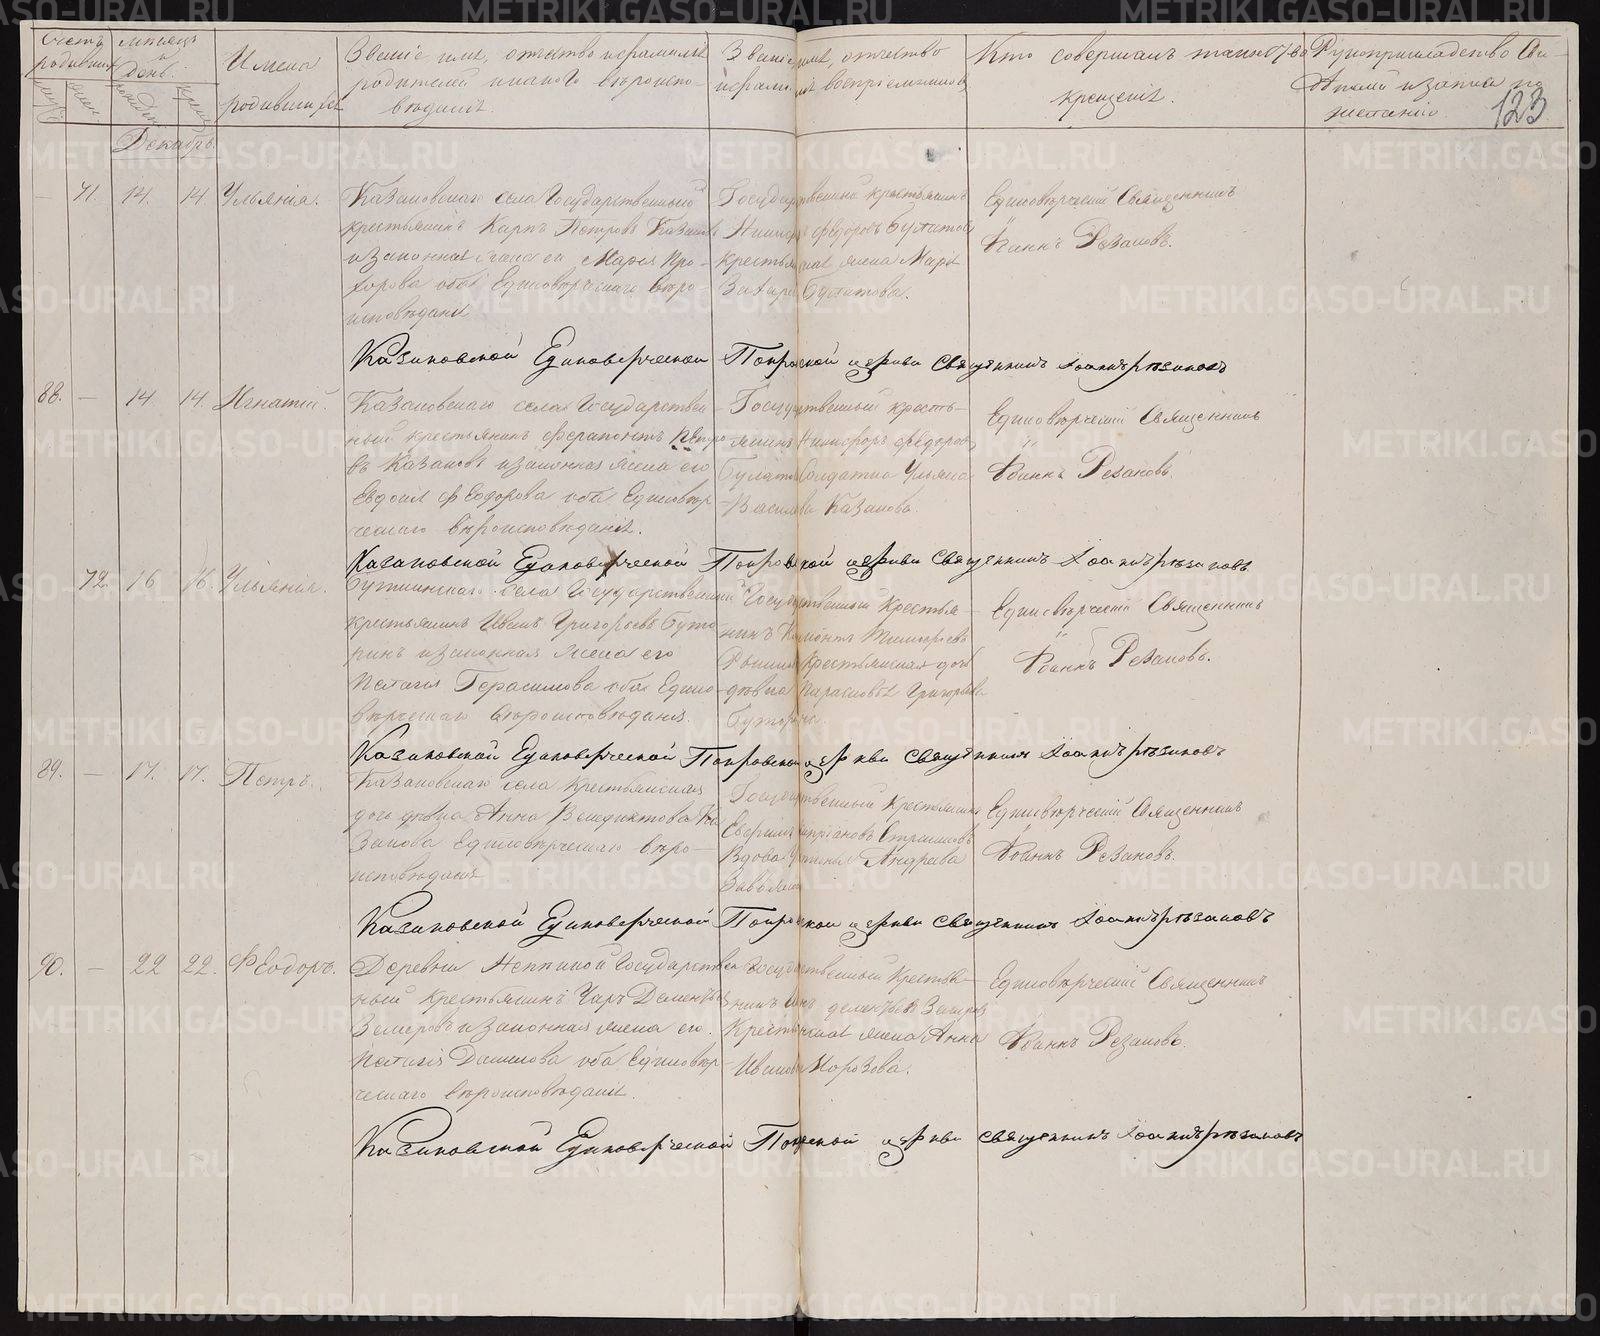 Счетъ родившихся
Мѣсяцъ и день.
Имена родившихся
Званіе имя, отчество и фамилія
родителей и какого вѣроиспо-
вѣданія.
Званіе имя, отчество
и фамилія воспріемниковъ
Кто совершалъ таинство
крещенія.
Рукоприкладство Сви-
дѣтелей записи по
желанію.
123
Декабрь.
— 71. 14. 14 Ульянія.
Казаковскаго села Государственный
крестьянинъ Карпъ Петровъ Казаковъ
и законная жена его Марія Про-
хорова оба Единовѣрческаго вѣро-
исповѣданія
Государственный крестьянинъ
Никифоръ Федоровъ Булатовъ
крестьянская жена Марія
Захарова Булатова.
Единовѣрческій Священникъ
Іоаннъ Рѣзановъ.
Казаковской Единоверческой Покровской церкви священникъ Іоаннъ Рѣзановъ
88. — 14 14. Игнатій.
Казаковскаго села Государствен-
ный крестьянинъ Ферапонтъ Петро
въ Казаковъ и законная жена его
Евдокія Феодорова оба Единовѣр
ческаго вѣроисповѣданія.
Государственный кресть-
янинъ Никифоръ Федоровъ
Булатовъ Солдатка Ульяна
Васильева Казакова.
Единовѣрческій Священникъ
Іоаннъ Рѣзановъ.
Казаковской Единоверческой Покровской церкви священникъ Іоаннъ Рѣзановъ
72. 16 16. Ульянія.
села Государственный
крестьянинъ Иванъ Григорьевъ Буто
ринъ и законная жена его
Пелагія Герасимова оба Едино-
вѣрческаго вѣроисповѣданія.
Государственный Крестья-
нинъ
Крестьянская дочь
дѣвица Парасковья Григорьева
Буторина.
Единовѣрческій Священникъ
Іоаннъ Рѣзановъ.
Казаковской Единоверческой Покровской церкви священникъ Іоаннъ Рѣзановъ
89. — 17. 17. Петръ.
Казаковскаго села Крестьянская
дочь дѣвица Анна Венедиктова Ка
закова Единовѣрческаго вѣро-
исповѣданія
Государственный Крестьянинъ
Вдова Андреева
Единовѣрческій Священникъ
Іоаннъ Рѣзановъ.
Казаковской Единоверческой Покровской церкви священникъ Іоаннъ Рѣзановъ
90. — 22 22. Феодоръ.
Деревни Государствен
ный крестьянинъ Дементьевъ
и законная жена его.
Пелагія Данилова оба Единовѣр-
ческаго вѣроисповѣданія.
Государственный Крестья-
нинъ Дементьевъ
Крестьянская жена Анна
Иванова Морозова.
Единовѣрческій Священникъ
Іоаннъ Рѣзановъ.
Казаковской Единоверческой Покровской церкви священникъ Іоаннъ Рѣзановъ
METRIKI.GASO-URAL.RU